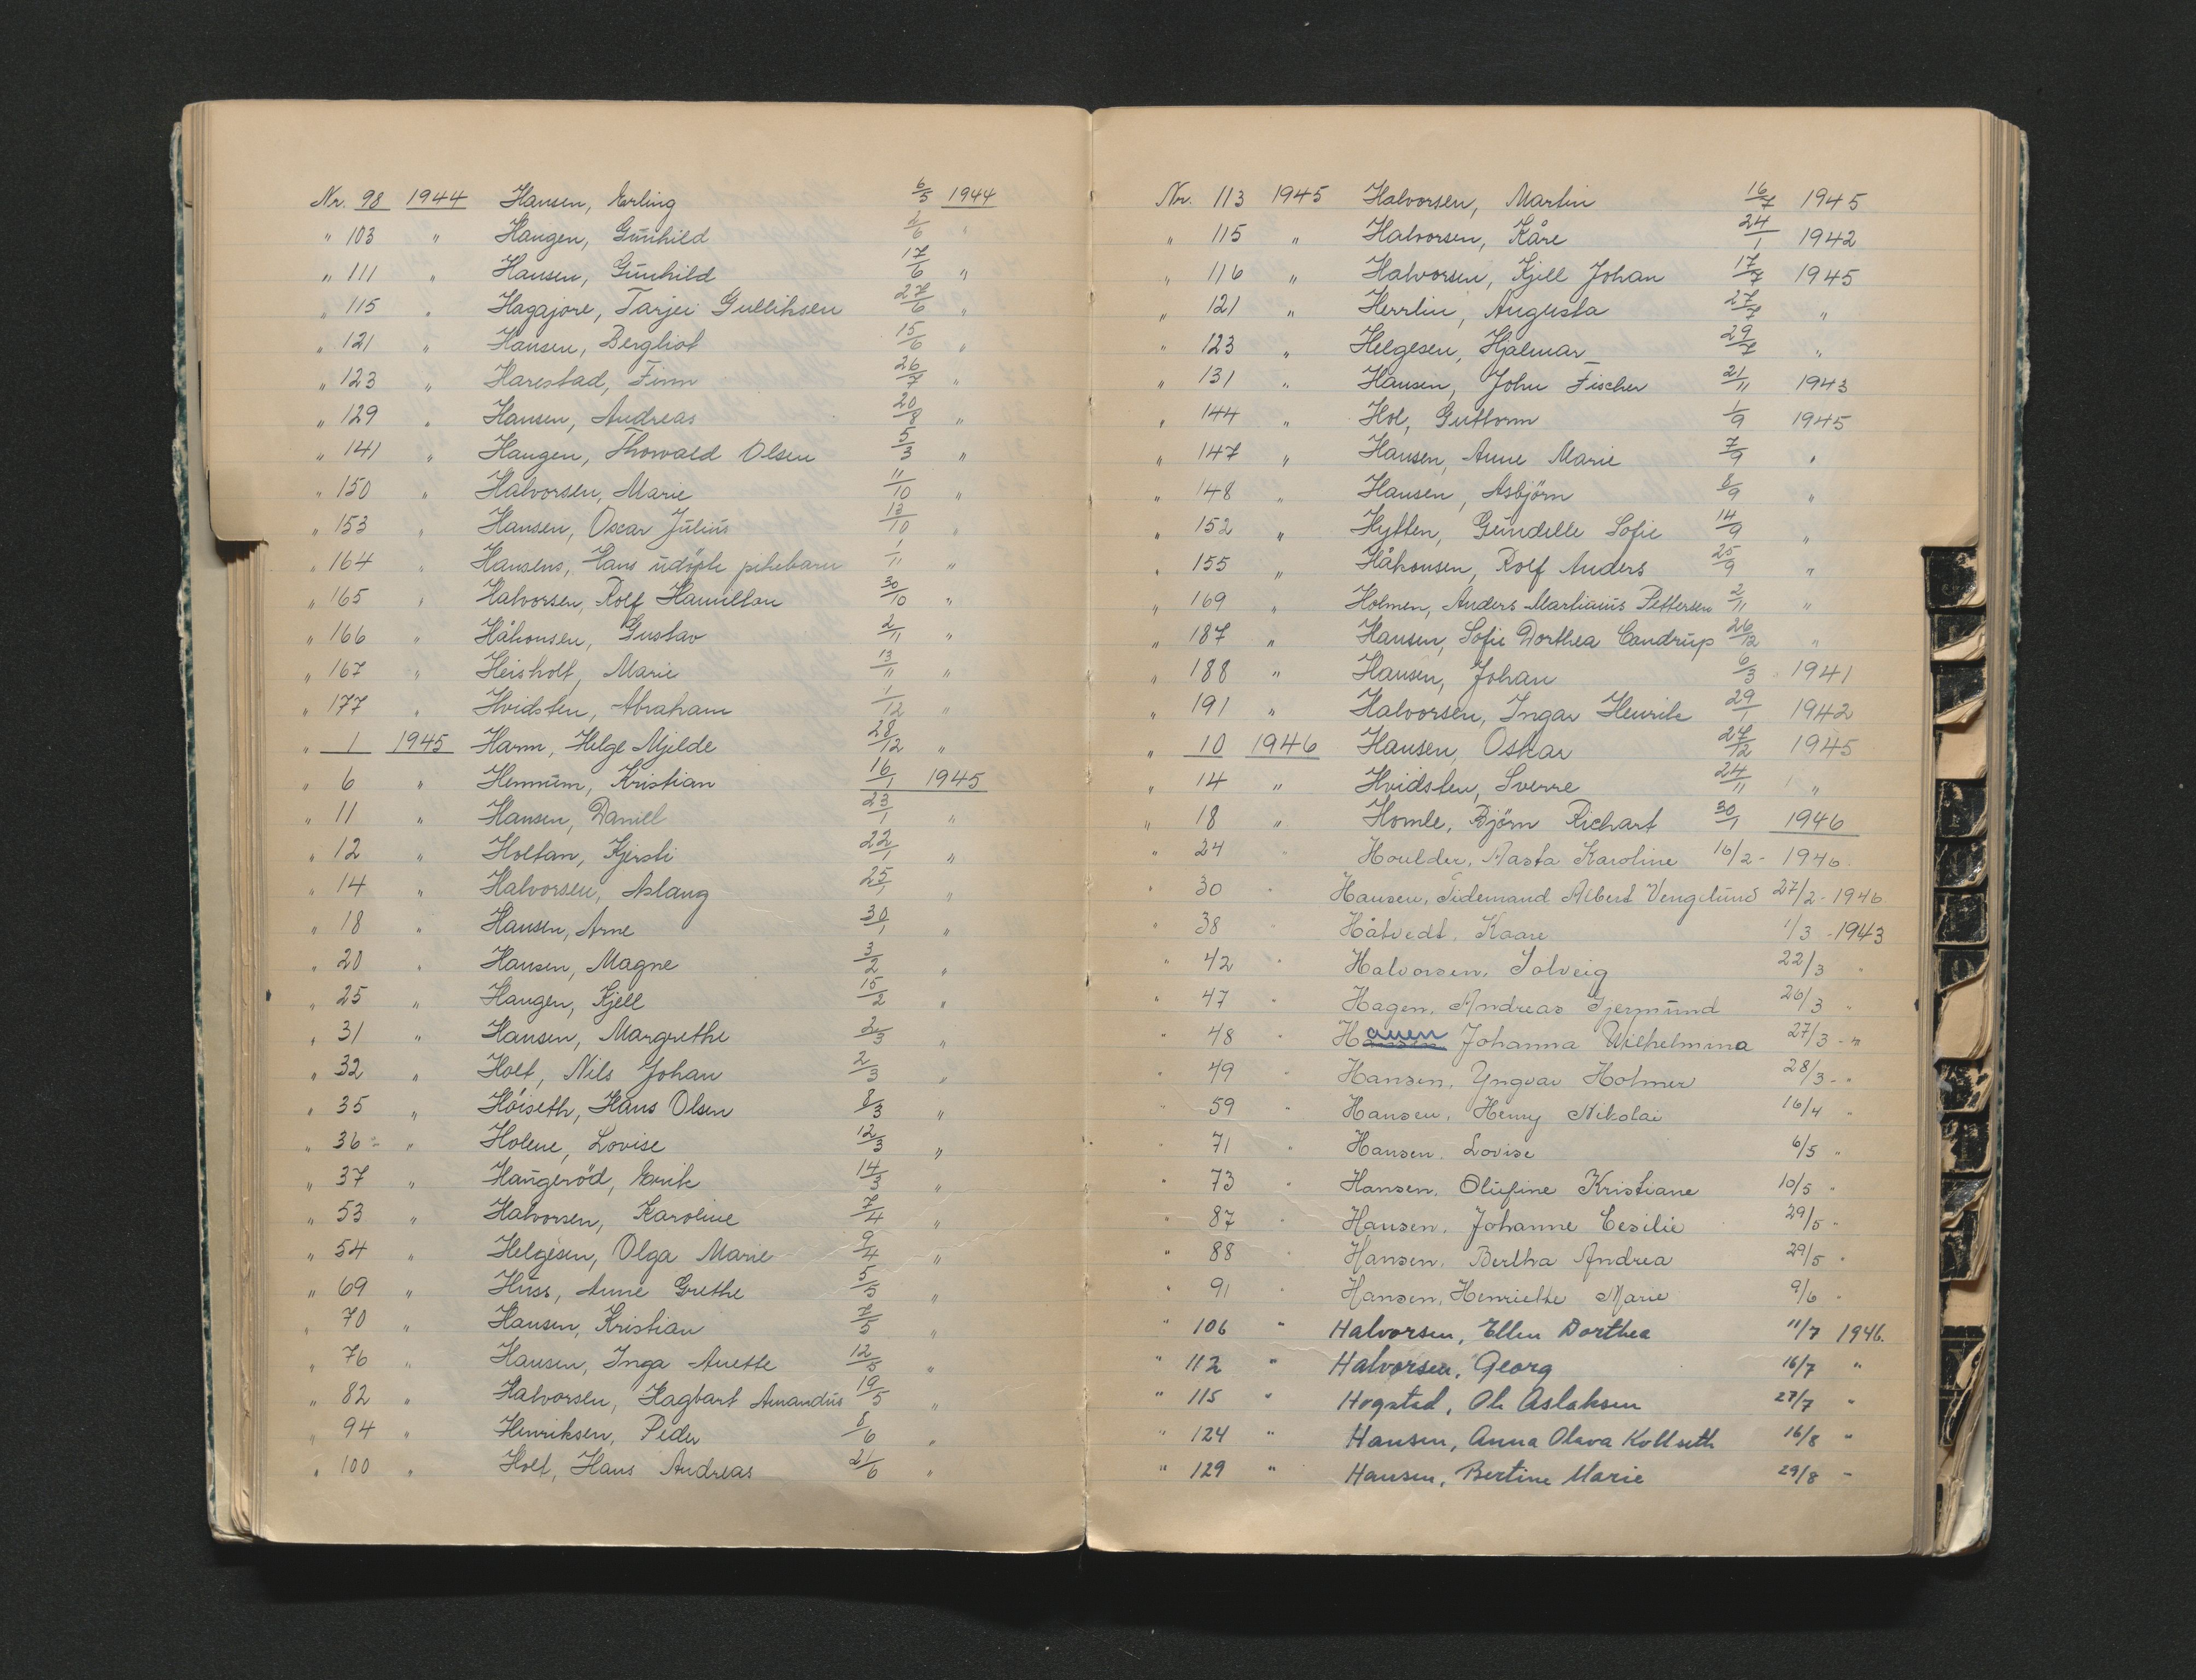 Nr. 98 1944 Hansen, Erling 6/5 1944
" 103 " Haugen, Gunhild 2/6 "
" 111 " Hansen, Gunhild 17/6 "
" 115 " Hagajore, Tarjei Gulliksen 27/6 "
" 121 " Hansen, Bergliot 15/6 "
" 123 " Harestad, Finn 26/7 "
" 129 " Hansen, Andreas 20/8 "
" 141 " Haugen, Thorvald Olsen 5/3 "
" 150 " Halvorsen, Marie 11/10 "
" 153 " Hansen, Oscar Julius 13/10 "
" 164 " Hansens, Hans udöpte pikebarn 1/11 "
" 165 " Halvorsen, Rolf Hamilton 30/10 "
" 166 " Håkonsen, Gustav 2/11 "
" 167 " Heisholt, Marie 13/11 "
" 177 " Hvidsten, Abraham 1/12 "
" 1 1945 Harm, Helge Mjelde 28/12 "
" 6 " Hennum, Kristian 16/1 1945
" 11 " Hansen, Daniel 23/1 "
" 12 " Holtan, Kjersti 22/1 "
" 14 " Halvorsen, Aslaug 25/1 "
" 18 " Hansen, Arne 30/1 "
" 20 " Hansen, Magne 3/2 "
" 25 " Haugen, Kjell 15/2 "
" 31 " Hansen, Margrethe 2/3 "
" 32 " Holt, Nils Johan 2/3 "
" 35 " Höiseth, Hans Olsen 8/3 "
" 36 " Holene, Lovise 12/3 "
" 37 " Haugeröd, Erik 14/3 "
" 53 " Halvorsen, Karoline 7/4 "
" 54 " Helgesen, Olga Marie 9/4 "
" 69 " Huss, Anne Grethe 5/5 "
" 70 " Hansen, Kristian 7/5 "
" 76 " Hansen, Inga Anette 12/5 "
" 82 " Halvorsen, Hagbart Amandus 19/5 "
" 94 " Henriksen, Peder 8/6 "
" 100 " Holt, Hans Andreas 21/6 "
Nr. 113 1945 Halvorsen, Martin 16/7 1945
" 115 " Halvorsen, Kåre 24/1 1942
" 116 " Halvorsen, Kjell Johan 17/7 1945
" 121 " Herrlin, Augusta 27/7 "
" 123 " Helgesen, Hjalmar 29/7 "
" 131 " Hansen, John Fischer 21/11 1943
" 144 " Hol, Guttorm 1/9 1945
" 147 " Hansen, Anne Marie 7/9 "
" 148 " Hansen, Asbjörn 8/9 "
" 152 " Hytten, Gundelle Sofie 14/9 "
" 155 " Håkonsen, Rolf Anders 25/9 "
" 169 " Holmen, Anders Martinius Pettersen 2/11 "
" 187 " Hansen, Sofie Dorthea Candrup 26/12 "
" 188 " Hansen, Johan 6/3 1941
" 191 " Halvorsen, Ingar Henrik 29/1 1942
" 10 1946 Hansen, Oskar 27/12 1945
" 14 " Hvidsten, Sverre 24/11 "
" 18 " Homle, Björn Richart 30/1 1946
" 24 " Houlder, Aasta Karoline 16/2 - 1946
" 30 " Hansen, Tidemand Albert 27/2 - 1946
" 38 " Håtvedt, Kaare 1/3 - 1943
" 42 " Halvorsen, Solveig 22/3 "
" 47 " Hagen, Andreas Gjermund 26/3 "
" 48 " Hauen Johanna Wilhelmina 27/3 - "
" 49 " Hansen, Yngvar Holmer 28/3 - "
" 59 " Hansen, Henry Nikolai 16/4 "
" 71 " Hansen, Lovise 6/5 "
" 73 " Hansen, Olufine Kristiane 10/5 "
" 87 " Hansen, Johanne Cesilie 29/5 "
" 88 " Hansen, Bertha Andrea 29/5 "
" 91 " Hansen, Henriette Marie 9/6 "
" 106 " Halvorsen, Ellen Dorthea 11/7 1946.
" 112 " Halvorsen, Georg 16/7 "
" 115 " Hogstad, Ole Aslaksen 27/7 "
" 124 " Hansen, Anna Olava Kollseth 16/8 "
" 129 " Hansen, Bertine Marie 29/8 "